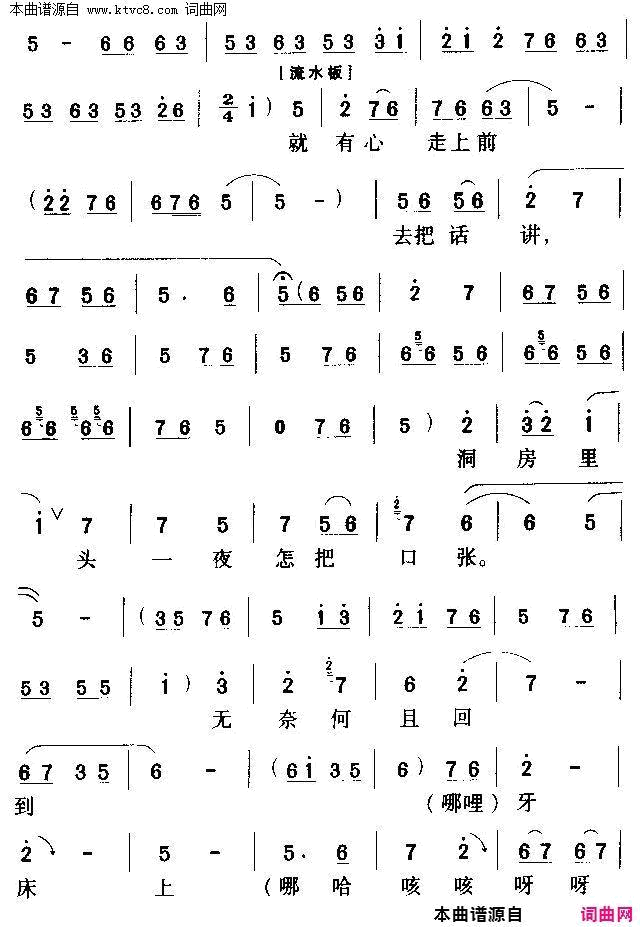 本曲谱源自 www.ktvc8.com 词曲网
5 - 6 6 6 3 | 5 3 6 3 5 3 3 i | 2 i 2 7 6 6 3
[流水板]
5 3 6 3 5 3 2 6 | 2/4 i ) 5 | 2 7 6 | 7 6 6 3 | 5 -
就 有心 走上前
( 2 2 7 6 | 6 7 6 5 | 5 - ) | 5 6 5 6 | 2 7
去把话 讲，
6 7 5 6 | 5 . 6 | 5 ( 6 5 6 | 2 7 | 6 7 5 6
5 3 6 | 5 7 6 | 5 7 6 | 6 5 6 5 6 | 6 5 6 5 6
6 5 6 6 5 6 5 6 | 7 6 5 | 0 7 6 | 5 ) 2 | 3 2 i
洞 房里
i ∨ 7 | 7 5 | 7 5 6 | 2 7 6 | 6 5
头 一夜 怎把 口张。
5 - | ( 3 5 7 6 | 5 i 3 | 2 i 7 6 | 5 7 6
5 3 5 5 | i ) 3 | 2 2 7 | 6 2 | 7 -
无 奈何 且回
6 7 3 5 | 6 - | ( 6 i 3 5 | 6 ) 7 6 | 2 -
到 (哪哩)牙
2 - | 5 - | 5 . 6 | 7 2 | 6 7 6 7
床 上 (哪哈 咳咳 呀呀
本曲谱源自 词曲网